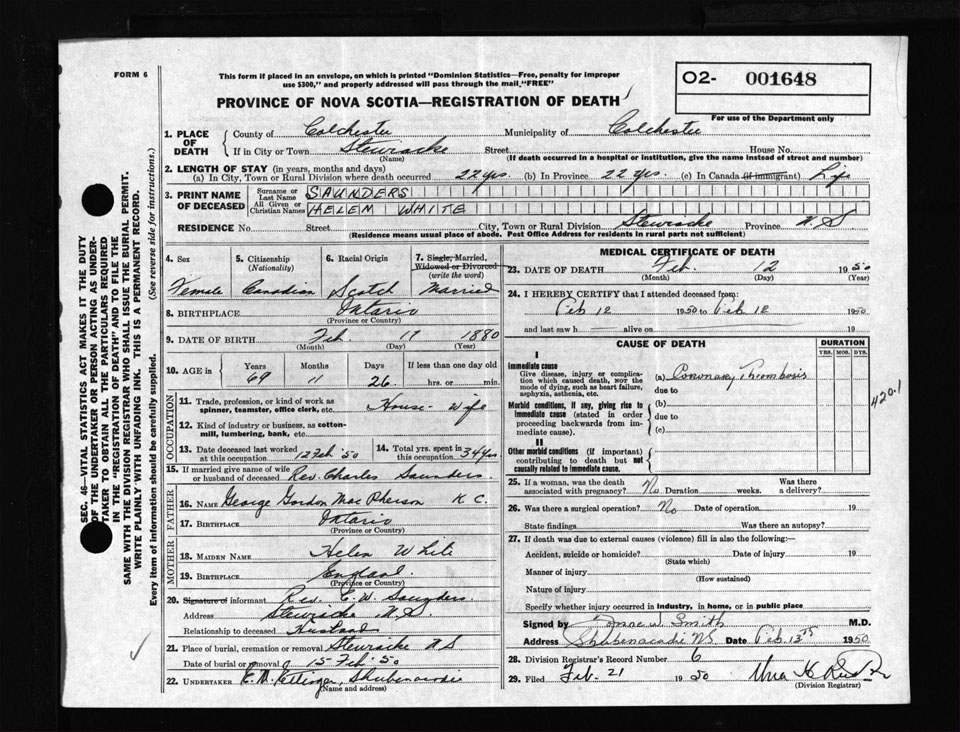 FORM 6
This form if placed in an envelope, on which is printed "Dominion Statistics—Free, penalty for improper
use $300," and properly addressed will pass through the mail "FREE"
O2- 001648
For use of the Department only
PROVINCE OF NOVA SCOTIA—REGISTRATION OF DEATH
1. PLACE OF DEATH
County of Colchester Municipality of Colchester
If in City or Town Stewiacke Street House No.
(Name) (If death occurred in a hospital or institution, give the name instead of street and number)
2. LENGTH OF STAY (in years, months and days)
(a) In City, Town or Rural Division where death occurred 22 yrs. (b) In Province 22 yrs. (c) In Canada (if immigrant) Life
3. PRINT NAME OF DECEASED
Surname or Last Name SAUNDERS
All Given or Christian Names HELEM WHITE
RESIDENCE No. Street City, Town or Rural Division Stewiacke Province N S
(Residence means usual place of abode. Post Office Address for residents in rural parts not sufficient)
4. Sex 5. Citizenship (Nationality) 6. Racial Origin 7. Single, Married, Widowed or Divorced (write the word)
Female Canadian Scotch Married
8. BIRTHPLACE Ontario
(Province or Country)
9. DATE OF BIRTH Feb. 17 1880
(Month) (Day) (Year)
10. AGE in Years Months Days If less than one day old
69 11 26 hrs. or min.
OCCUPATION
11. Trade, profession, or kind of work as
spinner, teamster, office clerk, etc. House-wife
12. Kind of industry or business, as cotton-
mill, lumbering, bank, etc.
13. Date deceased last worked at this occupation 12 Feb '50
14. Total yrs. spent in this occupation 34 yrs.
15. If married give name of wife
or husband of deceased Rev. Charles Saunders
FATHER
16. NAME George Gordon MacPherson K C.
17. BIRTHPLACE Ontario
(Province or Country)
MOTHER
18. MAIDEN NAME Helen White
19. BIRTHPLACE England.
(Province or Country)
20. Signature of informant Rev. C. W. Saunders.
Address Stewiacke N.S.
Relationship to deceased Husband
21. Place of burial, cremation or removal Stewiacke N S
Date of burial or removal 15 Feb. 50
22. UNDERTAKER Ettinger, Shubenacadie
(Name and address)
MEDICAL CERTIFICATE OF DEATH
23. DATE OF DEATH Feb. 12 1950
(Month) (Day) (Year)
24. I HEREBY CERTIFY that I attended deceased from:
Feb 12 1950 to Feb 12 1950
and last saw h alive on 19
CAUSE OF DEATH DURATION
YRS. MOS. DYS.
I
Immediate cause
Give disease, injury or complica-
tion which caused death, not the
mode of dying, such as heart failure,
asphyxia, asthenia, etc.
(a) Coronary Thrombosis
due to
Morbid conditions, if any, giving rise to
immediate cause (stated in order
proceeding backwards from im-
mediate cause).
(b)
due to
(c)
420.1
II
Other morbid conditions (if important)
contributing to death but not
causally related to immediate cause.
25. If a woman, was the death Was there
associated with pregnancy? No Duration weeks. a delivery?
26. Was there a surgical operation? No Date of operation. 19
State findings Was there an autopsy?
27. If death was due to external causes (violence) fill in also the following:—
Accident, suicide or homicide? Date of injury 19
(State which)
Manner of injury
(How sustained)
Nature of injury
Specify whether injury occurred in industry, in home, or in public place
Signed by W. Smith M.D.
Address Shubenacadie NS Date Feb 12th 1950
28. Division Registrar's Record Number 6
29. Filed Feb. 21 1950
(Division Registrar)
SEC. 46—VITAL STATISTICS ACT MAKES IT THE DUTY
OF THE UNDERTAKER OR PERSON ACTING AS UNDER-
TAKER TO OBTAIN ALL THE PARTICULARS REQUIRED
IN THE "REGISTRATION OF DEATH" AND TO FILE THE
SAME WITH THE DIVISION REGISTRAR WHO SHALL ISSUE THE BURIAL PERMIT.
WRITE PLAINLY WITH UNFADING INK. THIS IS A PERMANENT RECORD.
Every item of information should be carefully supplied. (See reverse side for instructions.)